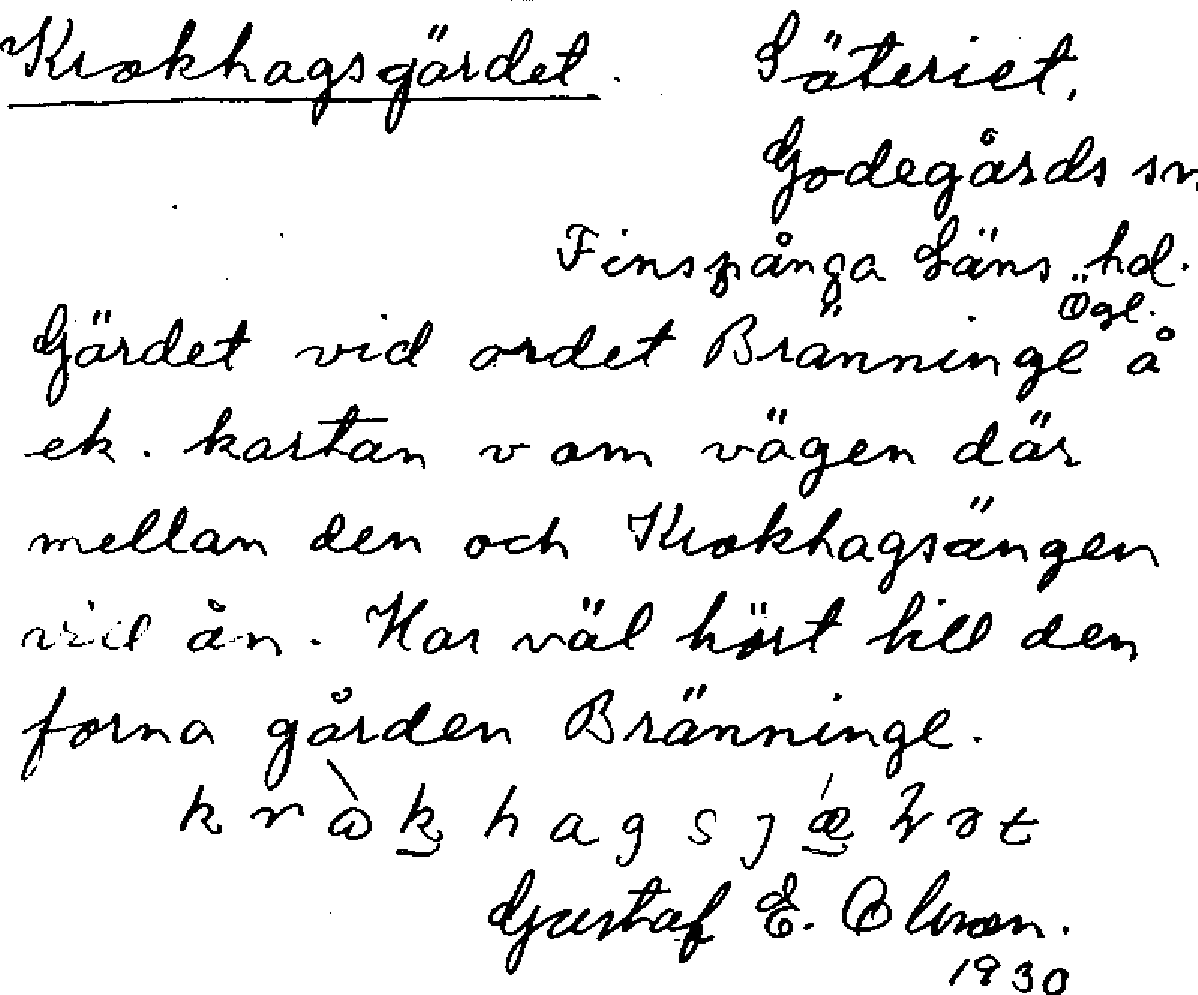 Krokhagsgärdet. Säteriet,
Godegårds sn,
Finspånga Läns hd.
Ögl.
Gärdet vid ordet Bränninge å
ek. kartan v om vägen där
mellan den och Krokhagsängen
vid ån. Har väl hört till den
forna gården Bränninge.
Gustaf E. Olsson.
1930